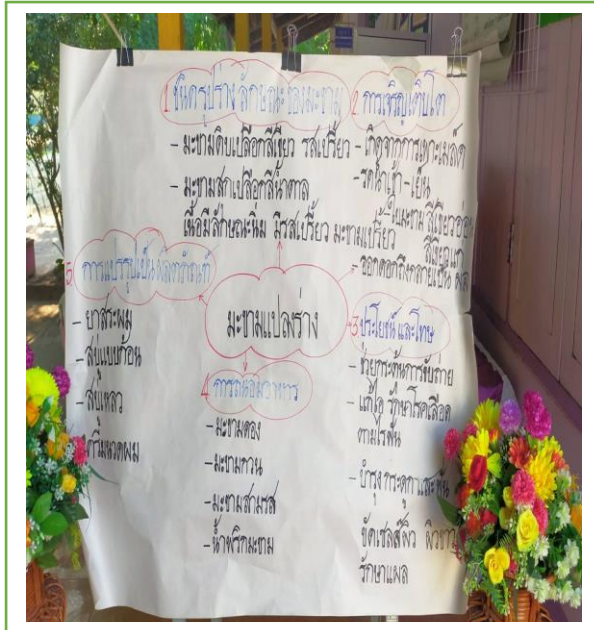 1 ชนิดรูปร่าง ลักษณะของมะขาม
- มะขามดิบเปลือกสีเขียว รสเปรี้ยว
- มะขามสุกเปลือกสีน้ำตาล
เนื้อมีลักษณะนิ่ม มีรสเปรี้ยว มะขามเปรี้ยว
2 การเจริญเติบโต
- เกิดจากการเพาะเมล็ด
- รดน้ำเช้า - เย็น
ใบมะขาม สีเขียวอ่อน
สีเขียวแก่
- ออกดอกถึงกลายเป็น ผล
มะขามแปลงร่าง
3 ประโยชน์ และโทษ
- ช่วยกระตุ้นการขับถ่าย
- แก้ไอ รักษาโรคเลือด
ตามไรฟัน
- บำรุง กระดูกและฟัน
ขัดเซลล์ผิว ผิวขาว
รักษาแผล
4 การถนอมอาหาร
- มะขามดอง
- มะขามกวน
- มะขามสามรส
- น้ำพริกมะขาม
5 การแปรรูปเป็นผลิตภัณฑ์
- ยาสระผม
- สบู่แบบก้อน
- สบู่เหลว
- ครีมนวดผม